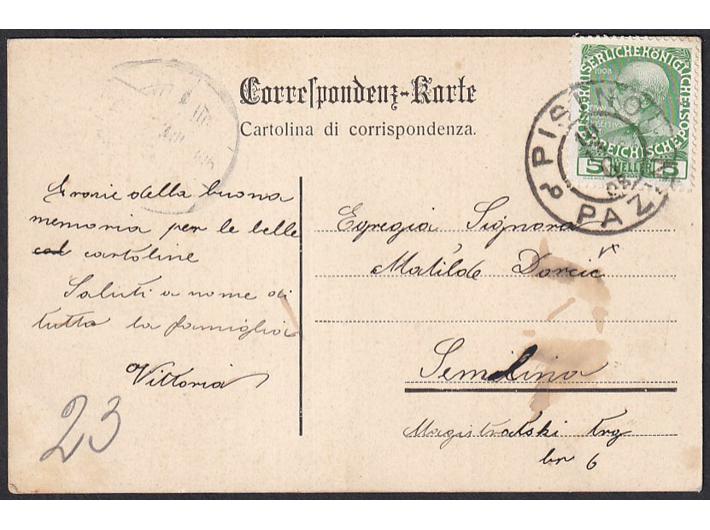 Correspondenz-Karte
Cartolina di corrispondenza.
KAISERLICHE KÖNIGLICHE
1908
5 HELLER 5
PISINO
PAZIN
Grazie della buona
memoria per le belle
cartoline
Saluti a nome di
tutta la famiglia
Vittoria
23
Egregia Signora
Matilde Dorčić
Semilina
Magistratski trg
br 6